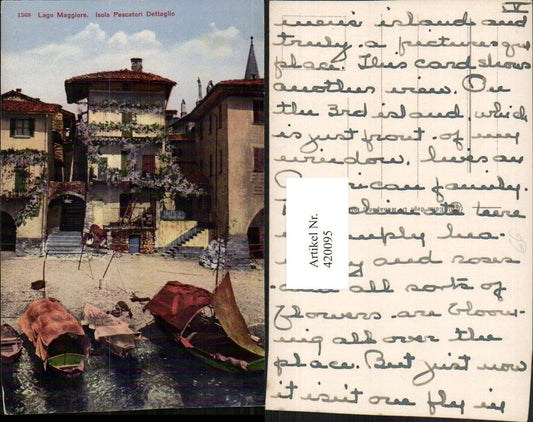 1568 Lago Maggiore. Isola Pescatori Dettaglio
V
men's island and
truly a picturesque
place. This card shows
another view. On
the 3rd island, which
is just front of my
window, lives an
American family.
here
simply
and roses
all sorts of
flowers are bloom-
ing all over the
place. But just now
it isn't one fly in
Artikel Nr.
420095